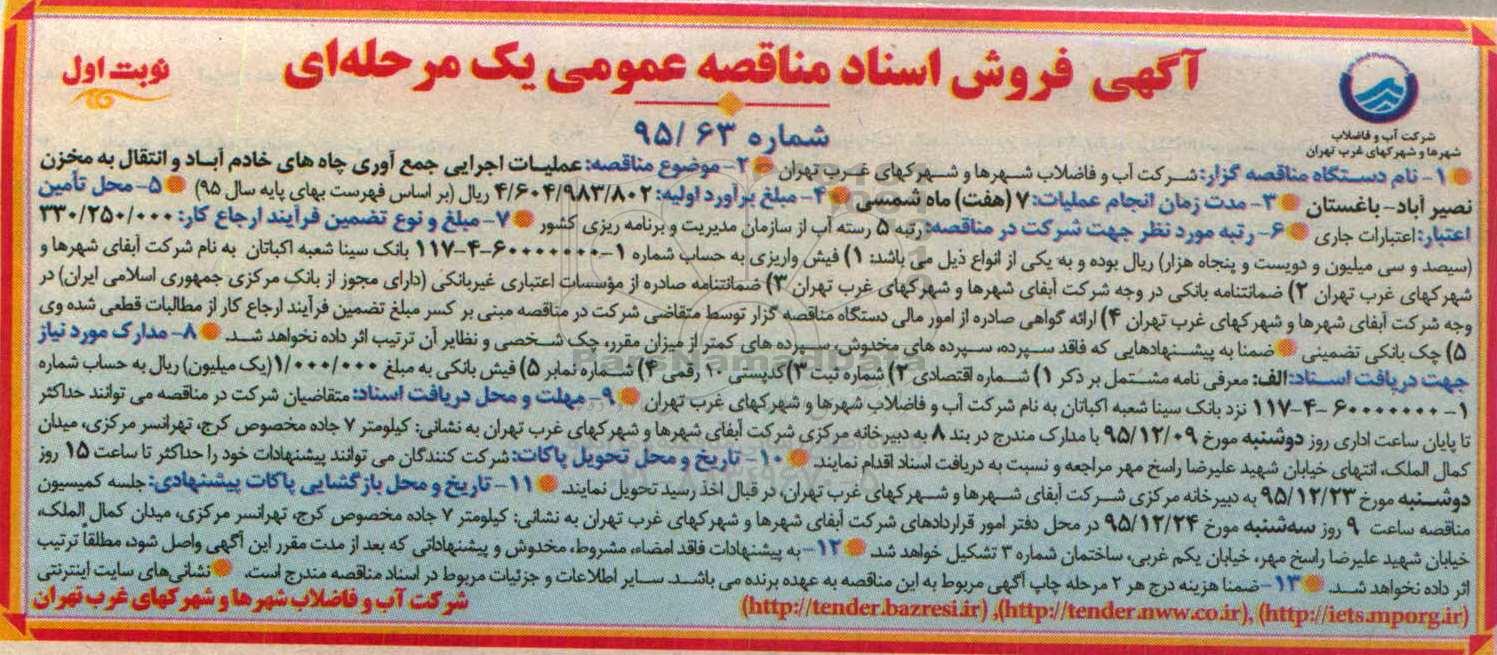 آگهی فروش اسناد مناقصه عمومی یک مرحله‌ای
نوبت اول
شماره ۹۵/۶۳
شرکت آب و فاضلاب
شهرها و شهرکهای غرب تهران
۱- نام دستگاه مناقصه گزار: شرکت آب و فاضلاب شهرها و شهرکهای غرب تهران ۲- موضوع مناقصه: عملیات اجرایی جمع آوری چاه های خادم آباد و انتقال به مخزن
نصیر آباد- باغستان ۳- مدت زمان انجام عملیات: ۷ (هفت) ماه شمسی ۴- مبلغ برآورد اولیه: ۴/۶۰۴/۹۸۳/۸۰۲ ریال (بر اساس فهرست بهای پایه سال ۹۵) ۵- محل تأمین
اعتبار: اعتبارات جاری ۶- رتبه مورد نظر جهت شرکت در مناقصه: رتبه ۵ رسته آب از سازمان مدیریت و برنامه ریزی کشور ۷- مبلغ و نوع تضمین فرآیند ارجاع کار: ۳۳۰/۲۵۰/۰۰۰
(سیصد و سی میلیون و دویست و پنجاه هزار) ریال بوده و به یکی از انواع ذیل می باشد: ۱) فیش واریزی به حساب شماره ۱-۶۰۰۰۰۰۰۰-۴-۱۱۷ بانک سینا شعبه اکباتان به نام شرکت آبفای شهرها و
شهرکهای غرب تهران ۲) ضمانتنامه بانکی در وجه شرکت آبفای شهرها و شهرکهای غرب تهران ۳) ضمانتنامه صادره از مؤسسات اعتباری غیربانکی (دارای مجوز از بانک مرکزی جمهوری اسلامی ایران) در
وجه شرکت آبفای شهرها و شهرکهای غرب تهران ۴) ارائه گواهی صادره از امور مالی دستگاه مناقصه گزار توسط متقاضی شرکت در مناقصه مبنی بر کسر مبلغ تضمین فرآیند ارجاع کار از مطالبات قطعی شده وی
۵) چک بانکی تضمینی ضمنا به پیشنهادهایی که فاقد سپرده، سپرده های مخدوش، سپرده های کمتر از میزان مقرر، چک شخصی و نظایر آن ترتیب اثر داده نخواهد شد. ۸- مدارک مورد نیاز
جهت دریافت اسناد: الف: معرفی نامه مشتمل بر ذکر ۱) شماره اقتصادی ۲) شماره ثبت ۳) کدپستی ۱۰ رقمی ۴) شماره نمابر ۵) فیش بانکی به مبلغ ۱/۰۰۰/۰۰۰ (یک میلیون) ریال به حساب شماره
۱-۶۰۰۰۰۰۰۰-۴-۱۱۷ نزد بانک سینا شعبه اکباتان به نام شرکت آب و فاضلاب شهرها و شهرکهای غرب تهران ۹- مهلت و محل دریافت اسناد: متقاضیان شرکت در مناقصه می توانند حداکثر
تا پایان ساعت اداری روز دوشنبه مورخ ۹۵/۱۲/۰۹ با مدارک مندرج در بند ۸ به دبیرخانه مرکزی شرکت آبفای شهرها و شهرکهای غرب تهران به نشانی: کیلومتر ۷ جاده مخصوص کرج، تهرانسر مرکزی، میدان
کمال الملک، انتهای خیابان شهید علیرضا راسخ مهر مراجعه و نسبت به دریافت اسناد اقدام نمایند. ۱۰- تاریخ و محل تحویل پاکات: شرکت کنندگان می توانند پیشنهادات خود را حداکثر تا ساعت ۱۵ روز
دوشنبه مورخ ۹۵/۱۲/۲۳ به دبیرخانه مرکزی شرکت آبفای شهرها و شهرکهای غرب تهران، در قبال اخذ رسید تحویل نمایند. ۱۱- تاریخ و محل بازگشایی پاکات پیشنهادی: جلسه کمیسیون
مناقصه ساعت ۹ روز سه‌شنبه مورخ ۹۵/۱۲/۲۴ در محل دفتر امور قراردادهای شرکت آبفای شهرها و شهرکهای غرب تهران به نشانی: کیلومتر ۷ جاده مخصوص کرج، تهرانسر مرکزی، میدان کمال الملک،
خیابان شهید علیرضا راسخ مهر، خیابان یکم غربی، ساختمان شماره ۳ تشکیل خواهد شد. ۱۲- به پیشنهادات فاقد امضاء، مشروط، مخدوش و پیشنهاداتی که بعد از مدت مقرر این آگهی واصل شود، مطلقاً ترتیب
اثر داده نخواهد شد. ۱۳- ضمنا هزینه درج هر ۲ مرحله چاپ آگهی مربوط به این مناقصه به عهده برنده می باشد. سایر اطلاعات و جزئیات مربوط در اسناد مناقصه مندرج است. نشانی‌های سایت اینترنتی
(http://tender.bazresi.ir) ,(http://tender.nww.co.ir), (http://iets.mporg.ir)
شرکت آب و فاضلاب شهرها و شهرکهای غرب تهران